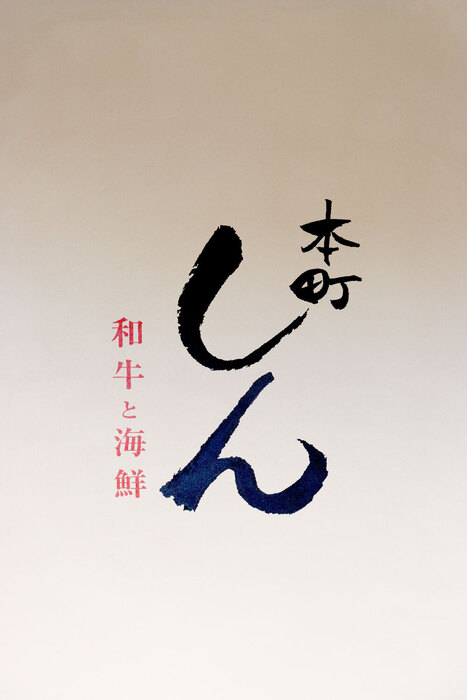 本町
しん
和牛と海鮮